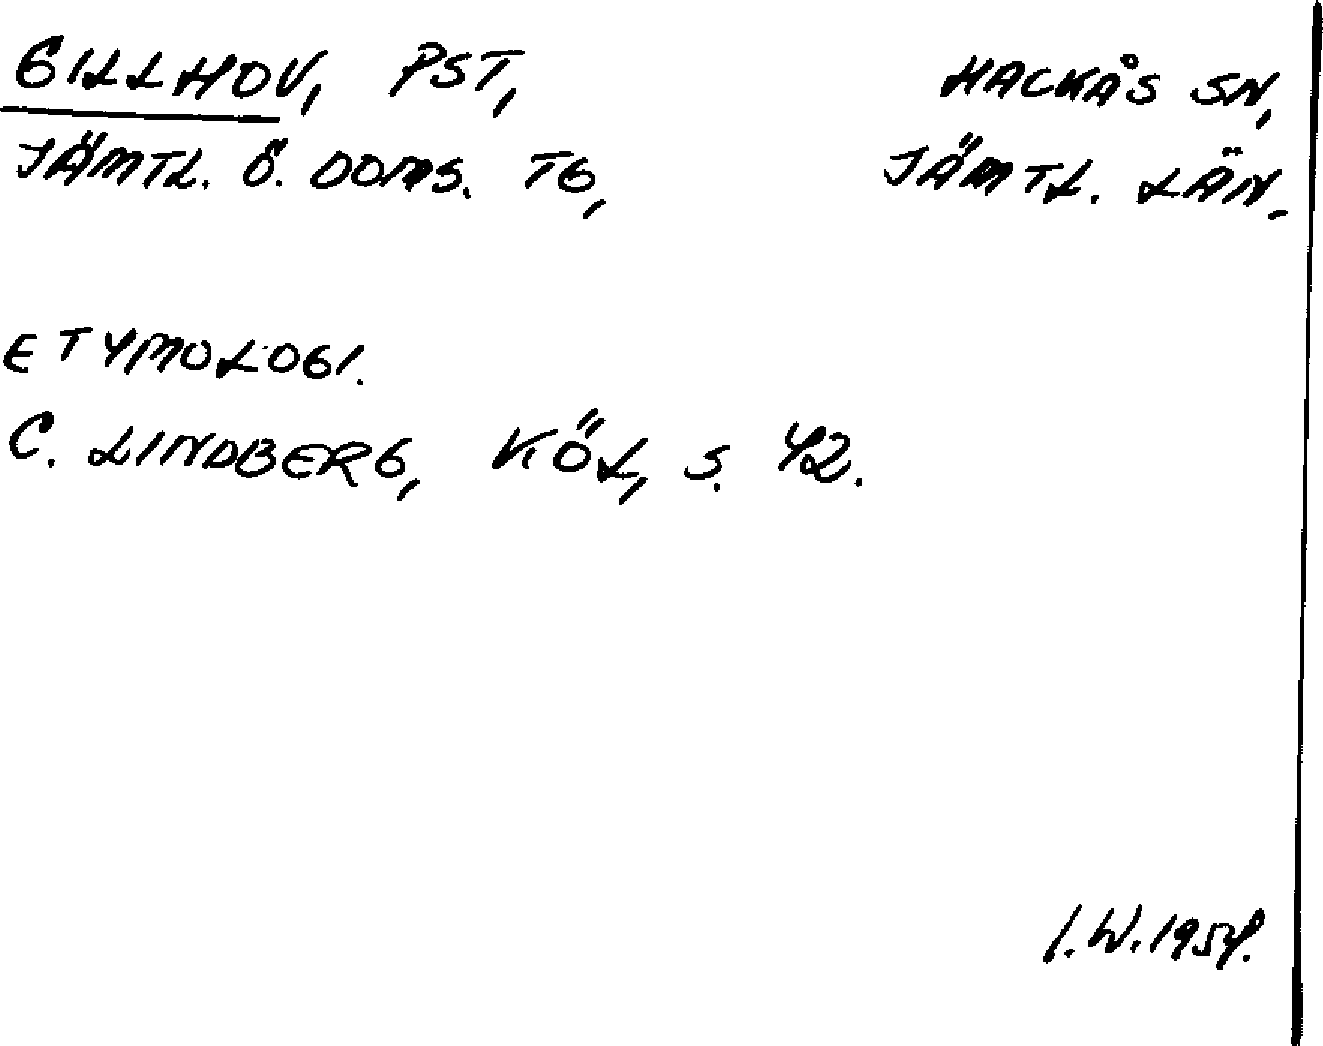 GILLHOV, PST, HACKÅS SN,
JÄMTL. Ö. DOMS. TG, JÄMTL. LÄN.
ETYMOLOGI.
C. LINDBERG, KÖL, S. 42.
I.W.1954.